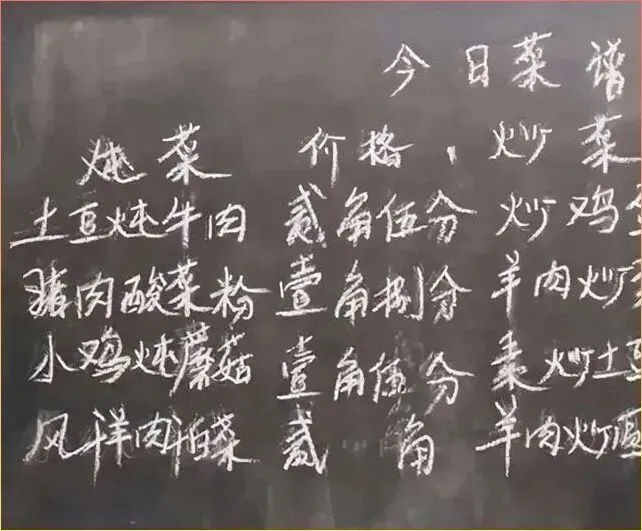 今日菜谱
炖菜 价格, 炒菜
土豆炖牛肉 贰角伍分 炒鸡
猪肉酸菜粉 壹角捌分 羊肉炒
小鸡炖蘑菇 壹角伍分 素炒土豆
风洋肉 菜 贰角 羊肉炒